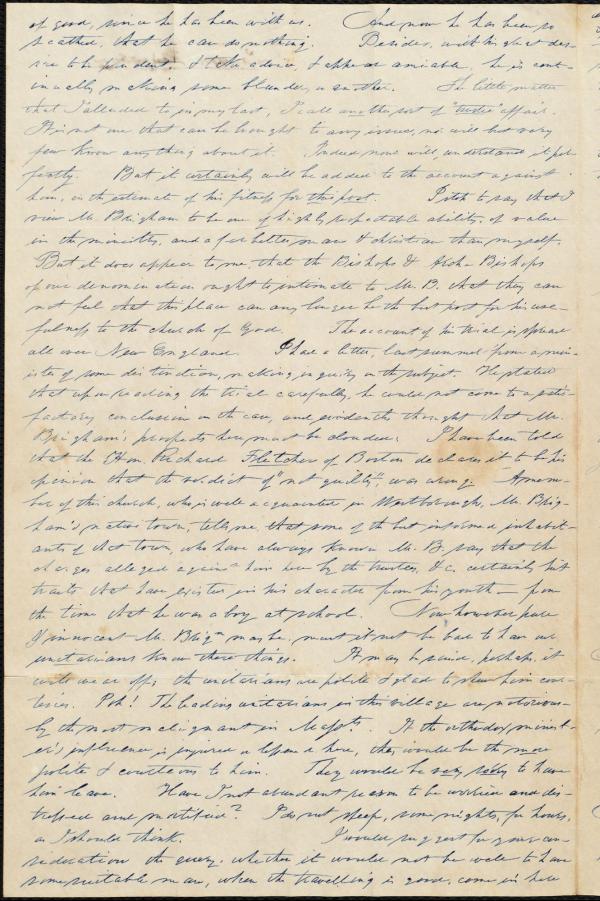 of good, since he has been with us. And now he has been so
scathed, that he can do nothing. Besides, with his great des-
ire to be prudent, & take advice, & appear amiable, he is cont-
inually making some blunder, or another. The little matter
that I alluded to in my last, I call another sort of " " affair.
It is not one that can be brought to any issue, nor will but very
few know any thing about it. Indeed none will understand it per-
fectly. But it certainly will be added to the account against
him, in the estimate of his fitness for this post. I wish to say that I
view Mr. Brigham to be one of highly respectable ability, of value
in the ministry, and a far better man & christian than myself.
But it does appear to me, that the Bishops & Arch Bishops
of our denomination ought to intimate to Mr. B. that they can
not feel that this place can any longer be the best post for his use-
fulness to the church of God. The account of his trial is spread
all over New England. I had a letter, last summer from a min-
ister of some distinction, making inquiry on the subject. He stated
that upon reading the trial carefully, he could not come to a satis-
factory conclusion in the case, and evidently thought that Mr.
Brigham's prospects here must be clouded. I have been told
that the Hon. Richard Fletcher of Boston declares it to be his
opinion that the verdict of "not guilty", was wrong. A mem-
ber of this church, who is well acquainted in Westborough, Mr. Brig-
ham's native town, tells me, that some of the best informed inhabit-
ants of that town, who have always known Mr. B. say that the
charges alleged against him here by the trustees, &c. certainly hit
traits that have existed in his character from his youth – from
the time that he was a boy at school. Now however pure
& innocent Mr. Brigm may be, must it not be bad to have our
unitarians know these things. It may be said, perhaps, it
will wear off; the unitarians are polite & glad to show him cour-
tesies. Poh! The leading unitarians in this village are notorious-
ly the most malignant in Massts. If the orthodox minist-
er's influence is injured or lessened here, they would be the more
polite & courteous to him. They would be very sorry to have
him leave. Have I not abundant reason to be worried and dis-
tressed and mortified? I do not sleep, some nights, for hours,
as I should think. I would suggest for your con-
sideration the query, whether it would not be well to have
some suitable man, when the travelling is good, come in here